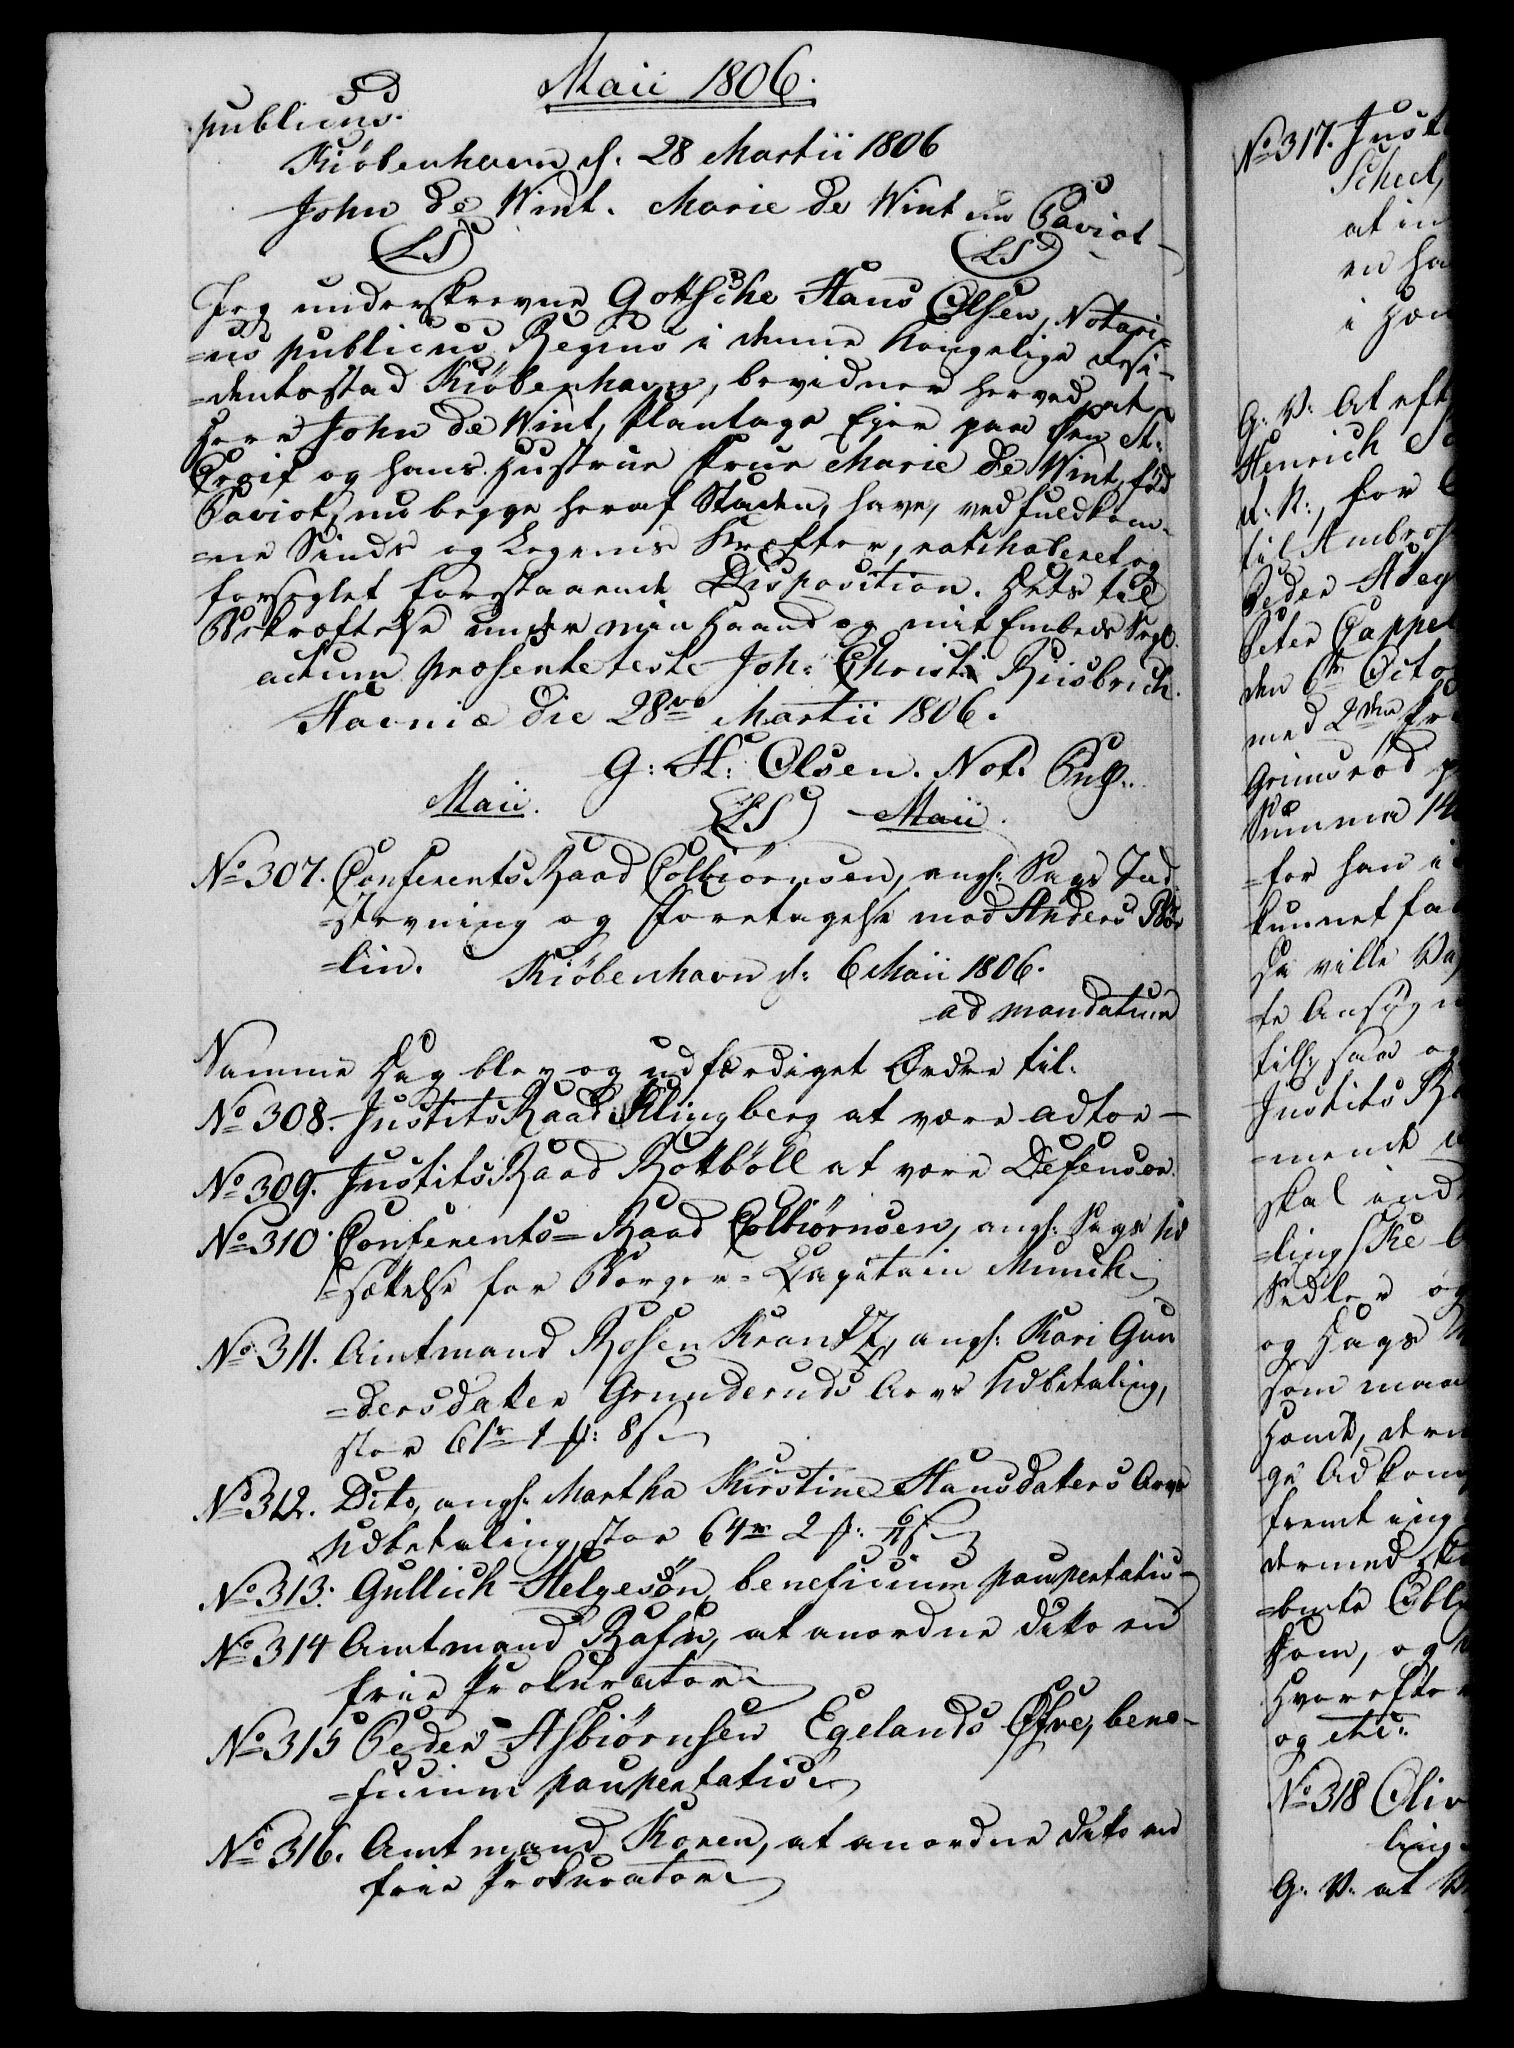 Maii 1806.
publicus.
Kiöbenhavn d. 28 Martii 1806
John de Wint. Marie de Wint née Paviot
(LS) (LS)
Jeg underskrevne Gottsche Hans Olsen, Notari-
=us publicus Regius i denne Kongelige Resi-
=dentsstad Kiöbenhavn, bevidner herved, at
Herr John de Wint, Plantage Eier paa Øen St:
Croix og hans Hustrue Frue Marie de Wint, fød
Paviot, nu begge her af Staden, have, ved fuldkom-
=ne Sinds og Legems Kræfter, ratihaberet og
forseglet forestaaende Disposition. Dets til
Bekræftelse under min Haand og mit Embeds Segl.
actum præsente teste Joh: Christ: Riisbrich.
Hafniæ die 28vo Martii 1806.
G: H: Olsen. Not: Publ:
Maii. (LS) Maii.
No 307. Conferents Raad Colbiörnsen, angl: Sags Ind-
=stevning og Foretagelse mod Anders Bör
=lin. Kiöbenhavn d: 6 Maii 1806.
ad mandatum
Samme Dag blev og udfærdiget Ordre til.
No 308. Justits Raad Klingberg at være Actor
No 309. Justits Raad Rottböll at være Defensor.
No 310. Conferents=Raad Colbiörnsen, angl: Sags Ud
=sættelse for Borger=Capitain Munch
No 311. Amtmand Rosenkrantz, angl: Kari Gun
=dersdatter Grunderuds Arvs Udbetaling,
stor 61 r 1 : 8 s.
No 312. Dito, angl: Martha Kirstine Hansdatters Arvs
Udbetaling, stor 64 r 2 : s.
No 313. Gullich Helgesön beneficium paupertatis
No 314 Amtmand Rafn, at anordne dito en
frie Prokurator
No 315 Peder Asbiörnsen Egelands Øfre, bene-
=ficium paupertatis.
No 316. Amtmand Koren, at anordne dito en
frie Prokurator
No 317. Just
Scheel,
at in
en ha
i Hen
G: V: At eft
Henrich
til Ambros
Peder Aag
Peter Cappel
den 6te Octo
med 2den
Grimsröd
Summa 14
=for han i
kunnet faa
Da ville Va
=te Ansøgn
tillige saa og
Justits Ra
=mente
skal ind
=lingske
Sedler og
og Dags
som maa
Hænde, der
ge Adkom
fremt ing
dermed
=bute Obl
som, og
Hvorefter
og etc:
No 318 Oliv
ling
G: V: at V